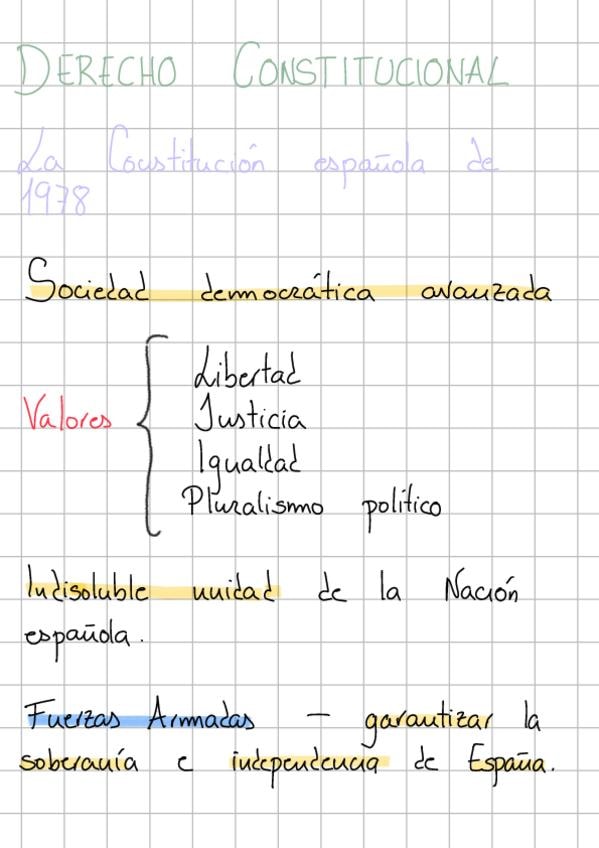 DERECHO CONSTITUCIONAL
La Constitución española de
1978
Sociedad democrática avanzada
Valores
Libertad
Justicia
Igualdad
Pluralismo político
Indisoluble unidad de la Nación
española.
Fuerzas Armadas – garantizar la
soberanía e independencia de España.